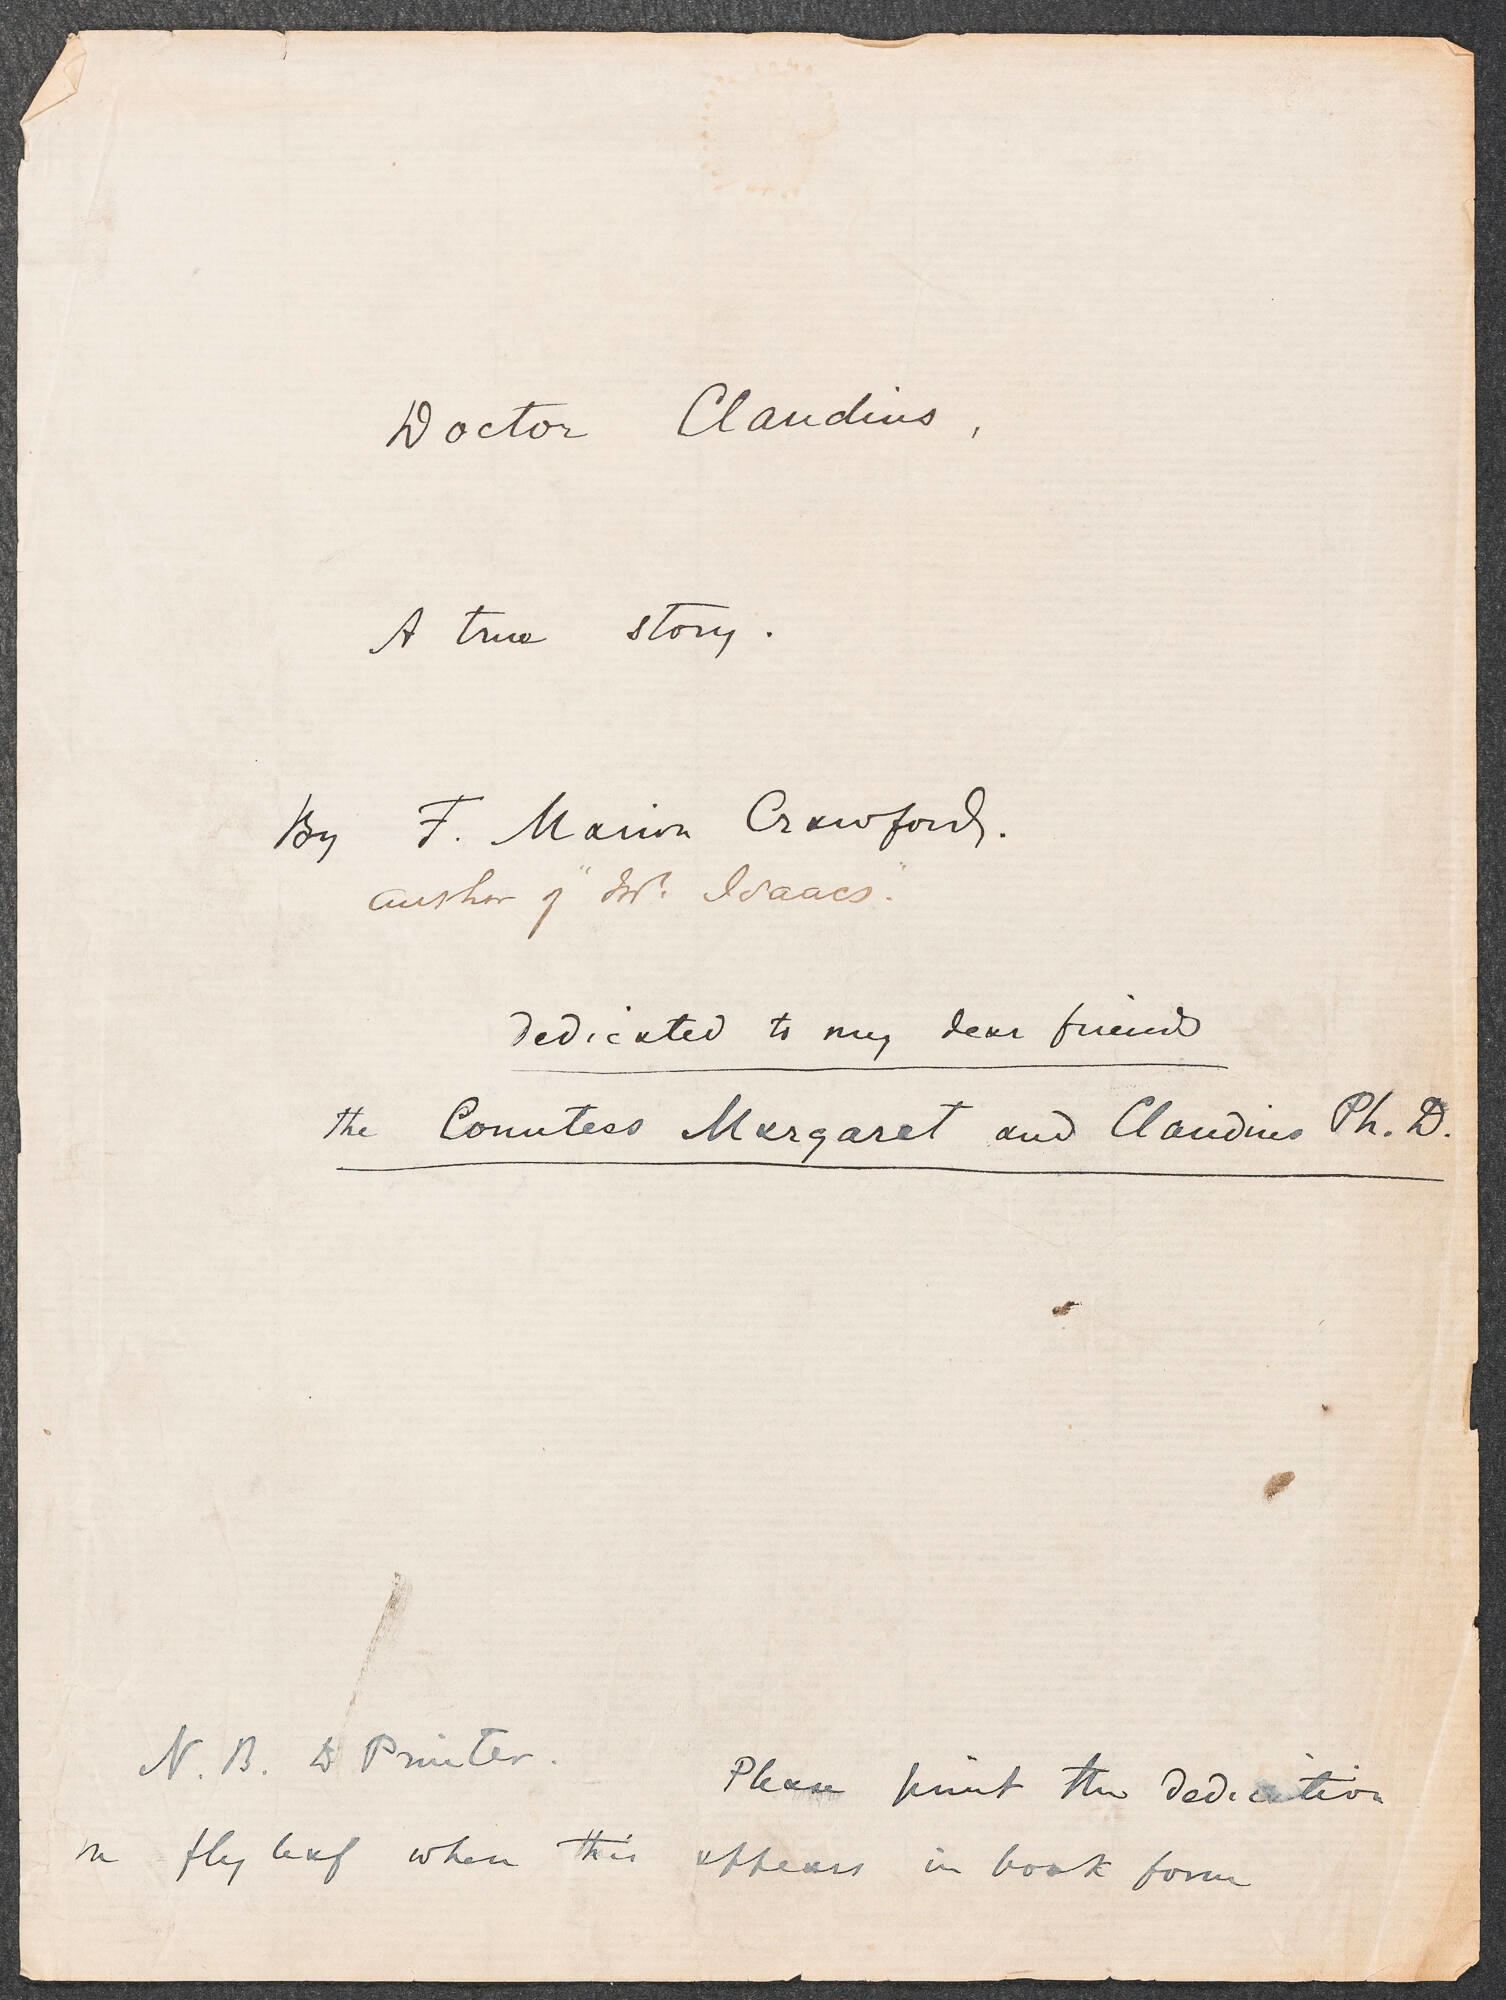 Doctor Claudius,
A true story.
By F. Marion Crawford.
author of "Mr. Isaacs".
Dedicated to my dear friends
the Countess Margaret and Claudius Ph. D.
N. B. to Printer. Please print the dedication
on fly leaf when this appears in book form